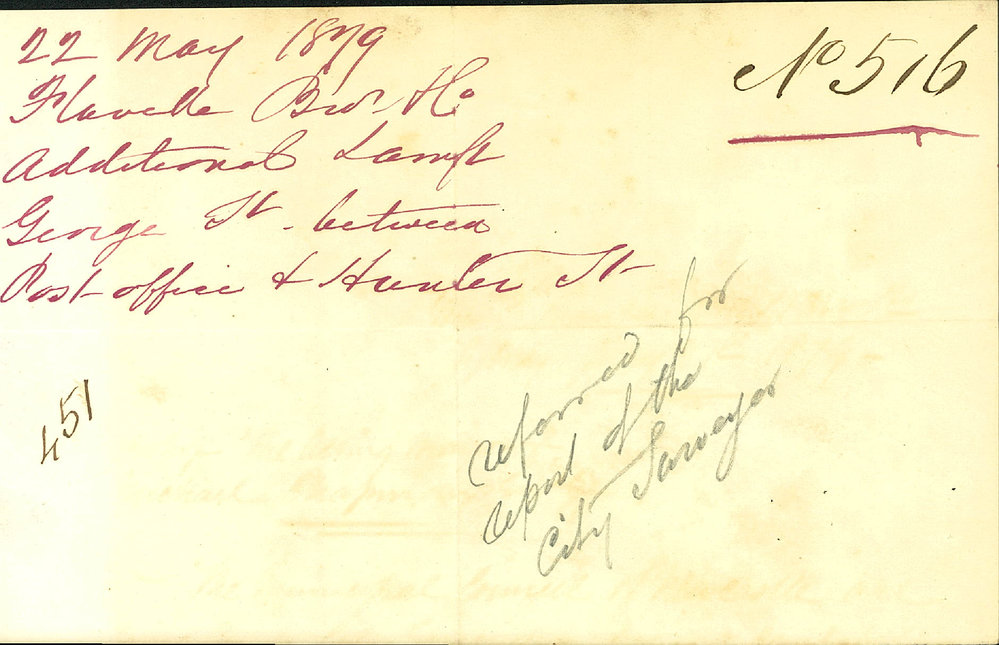 22 May 1879
No 516
Flavelle Bros. & Co
Additional Lamps
George St - between
Post-office & Hunter St
451
referred for
report of the
City Surveyor